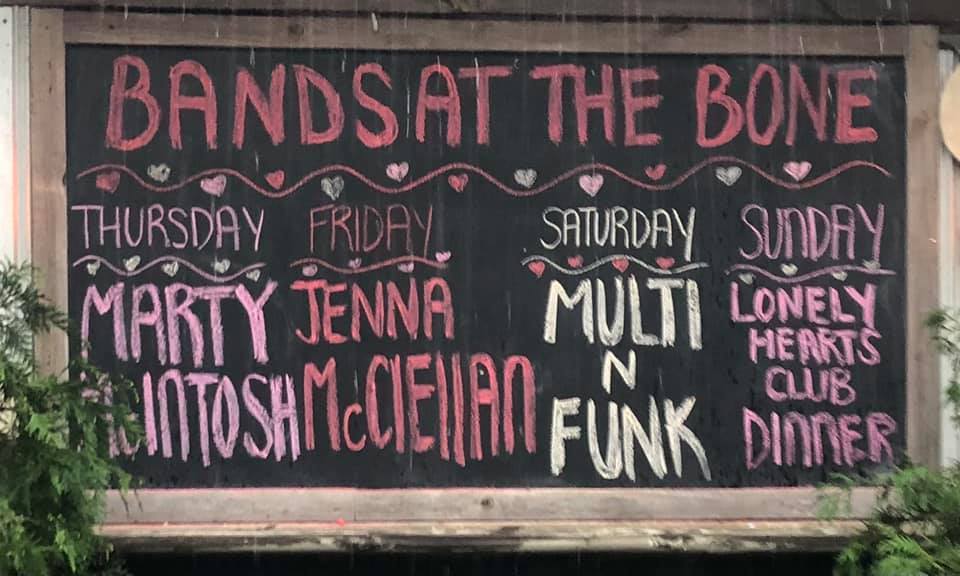 BANDS AT THE BONE
THURSDAY
MARTY
McINTOSH
FRIDAY
JENNA
McClEllAn
SATURDAY
MULTI
N
FUNK
SUnDAY
LONELY
HEARTS
CLUB
DInnER